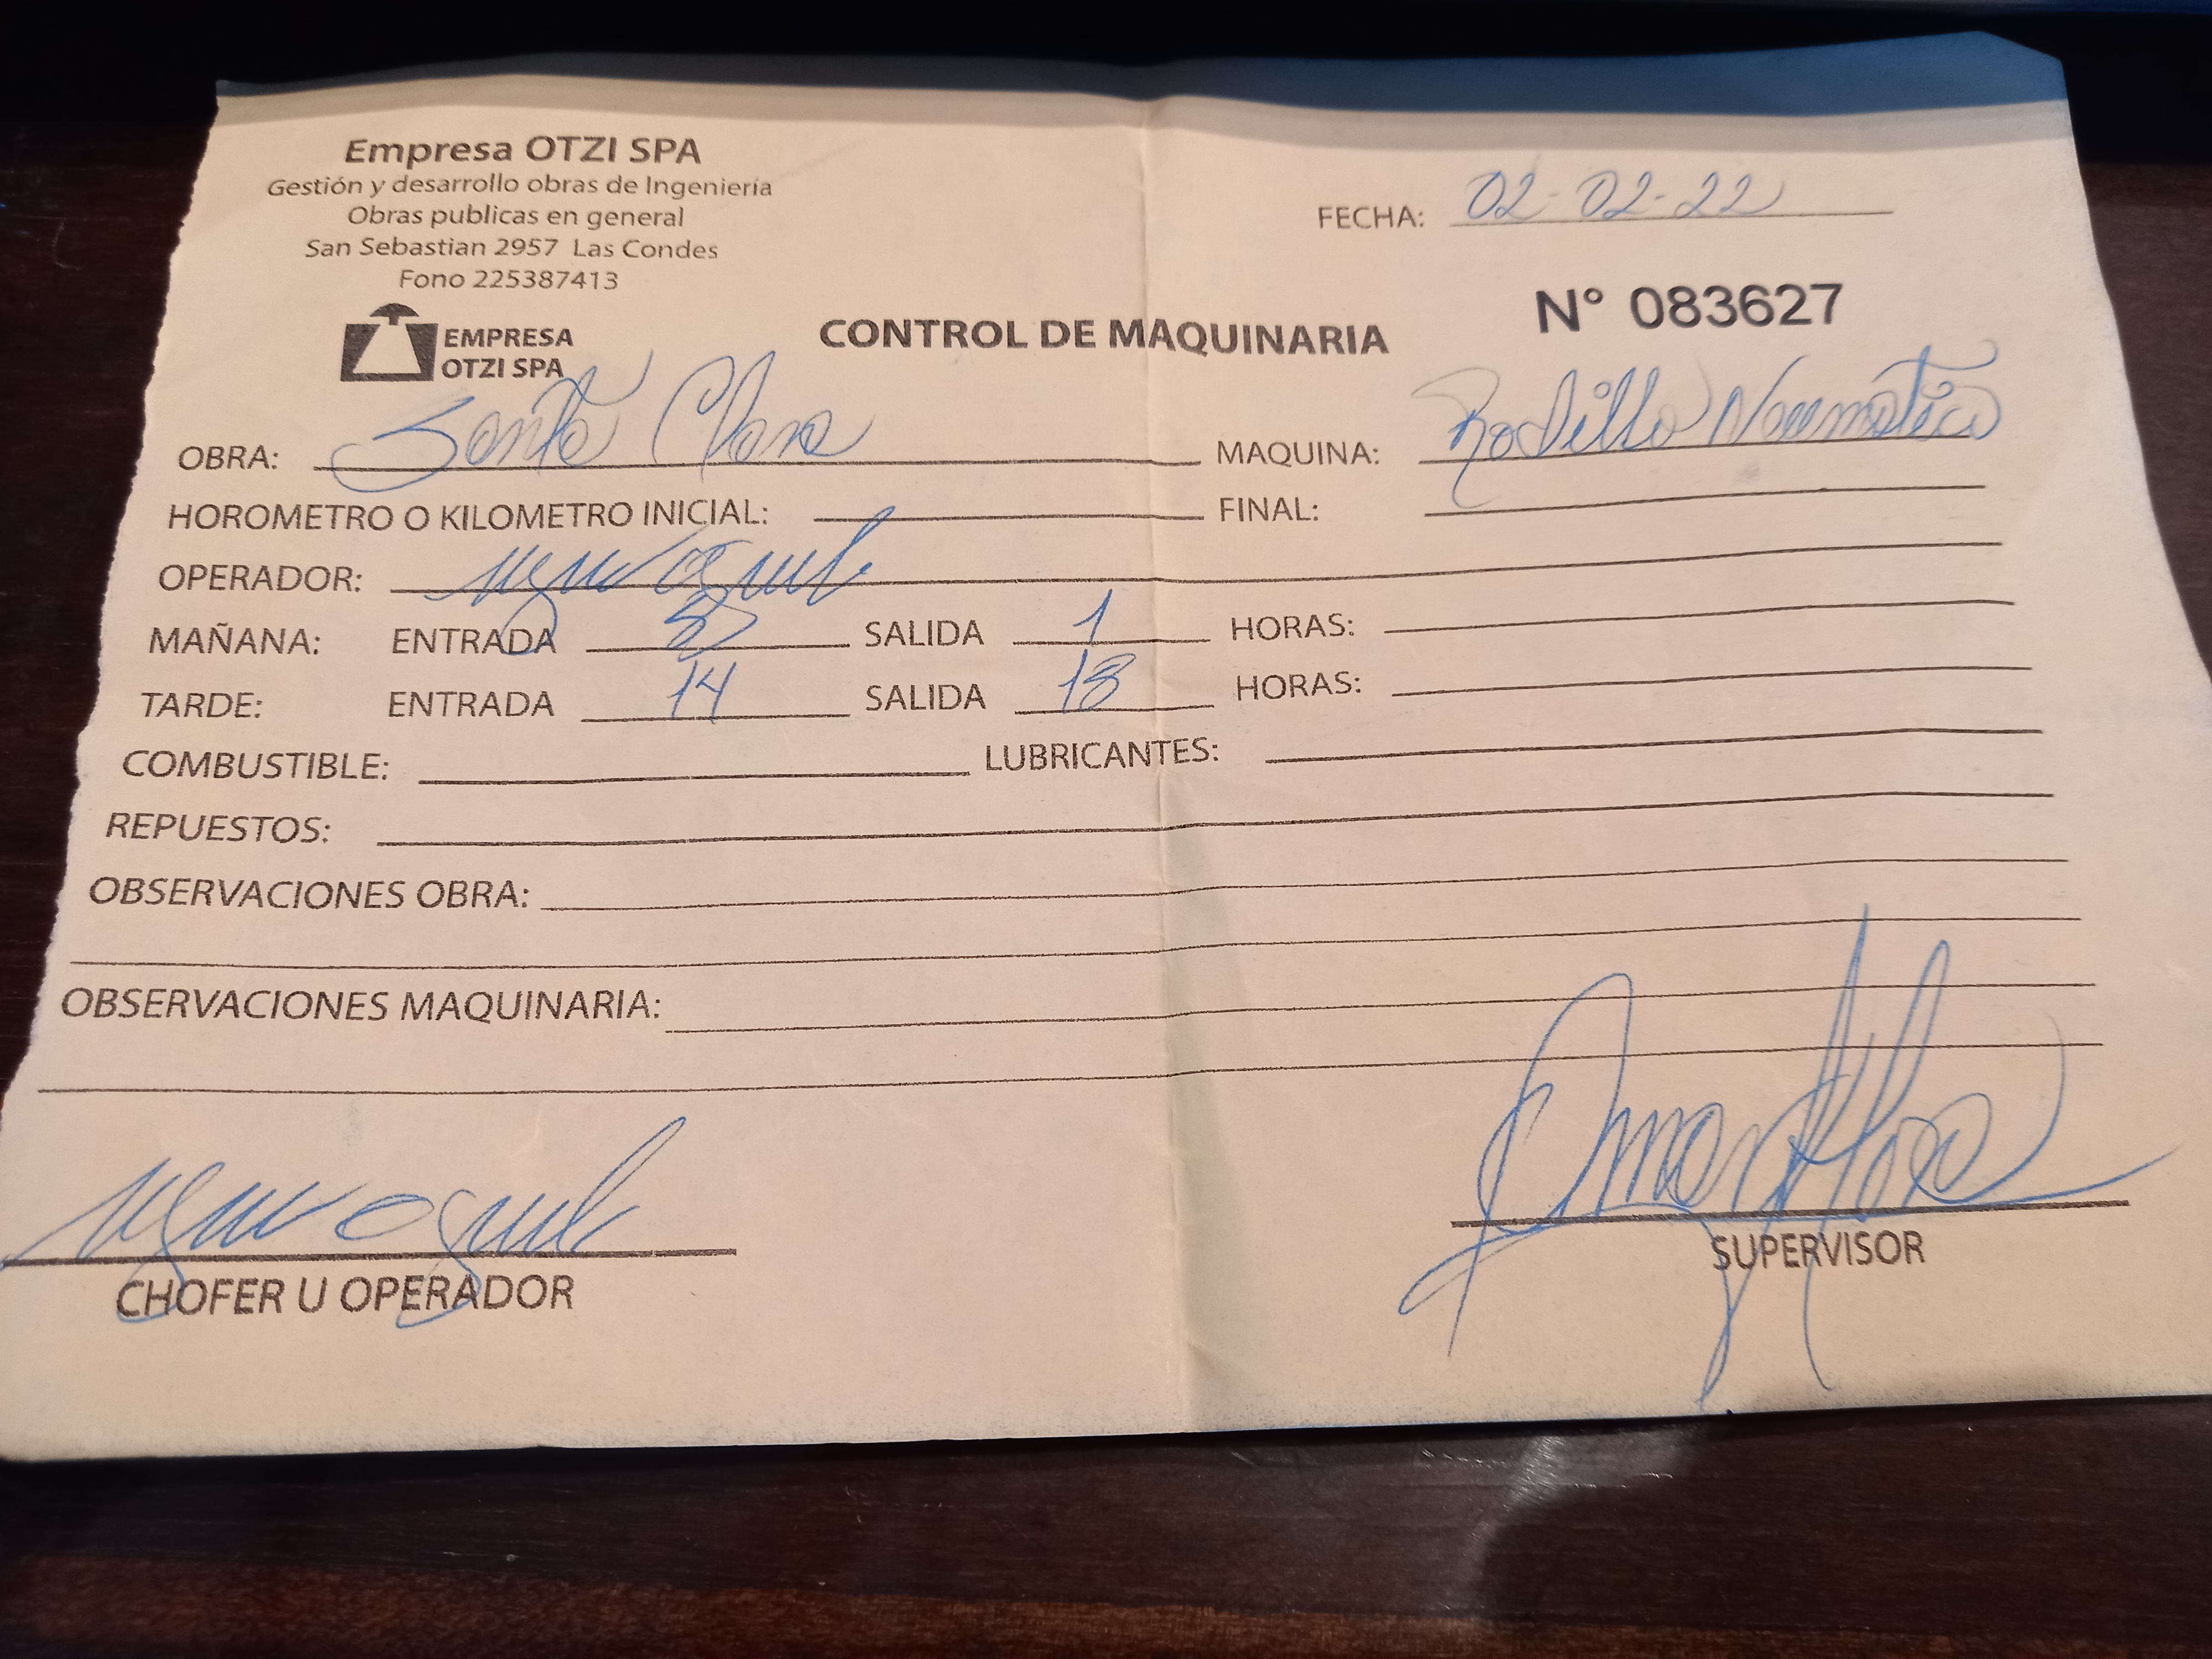 Empresa OTZI SPA
Gestión y desarrollo obras de Ingeniería
Obras publicas en general
San Sebastian 2957 Las Condes
Fono 225387413
EMPRESA
OTZI SPA
FECHA: 02-02-22
N° 083627
CONTROL DE MAQUINARIA
OBRA: Santa Clara MAQUINA: Rodillo Neumatico
HOROMETRO O KILOMETRO INICIAL: FINAL:
OPERADOR:
MAÑANA: ENTRADA SALIDA 1 HORAS:
TARDE: ENTRADA 14 SALIDA 18 HORAS:
COMBUSTIBLE: LUBRICANTES:
REPUESTOS:
OBSERVACIONES OBRA:
OBSERVACIONES MAQUINARIA:
CHOFER U OPERADOR
SUPERVISOR